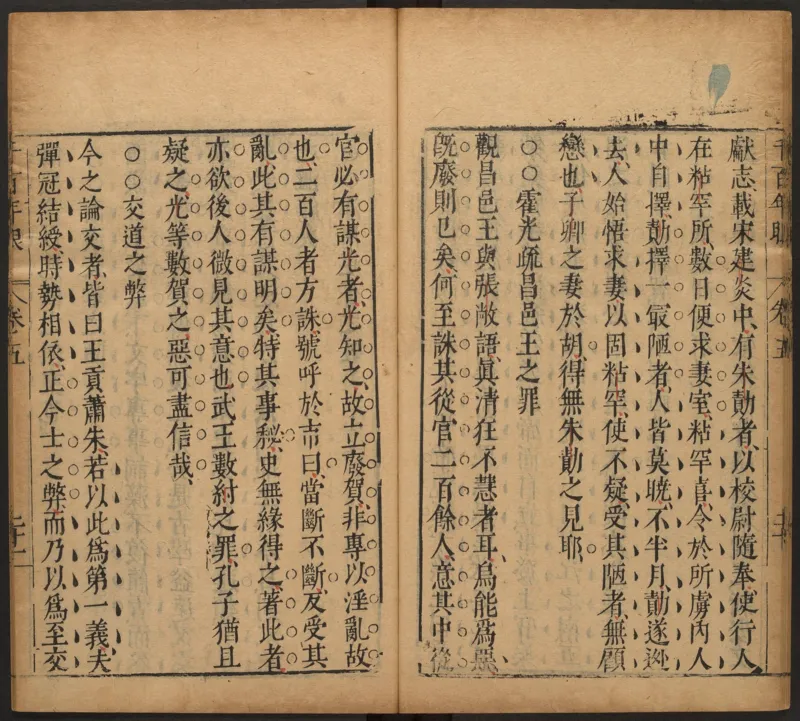 千百年眼 卷五
獻志載宋建炎中有朱勣者以校尉隨奉使行人
在粘罕所數日便求妻室粘罕喜令於所虜內人
中自擇勣擇一最陋者人皆莫曉不半月勣遂逃
去人始悟求妻以固粘罕使不疑受其陋者無顧
戀也子卿之妻於胡得無朱勣之見耶
○○霍光疏昌邑王之罪
觀昌邑王與張敞語真清狂不慧者耳烏能為惡
既廢則已矣何至誅其從官二百餘人意其中從
官必有謀光者光知之故立廢賀非專以淫亂故
也二百人者方誅號呼於市曰當斷不斷反受其
亂此其有謀明矣特其事秘史無緣得之著此者
亦欲後人微見其意也武王數紂之罪孔子猶且
疑之光等數賀之惡可盡信哉
○○交道之弊
今之論交者皆曰王貢蕭朱若以此爲第一義夫
彈冠結綬時勢相依正今士之弊而乃以爲至交
千百年眼 卷五